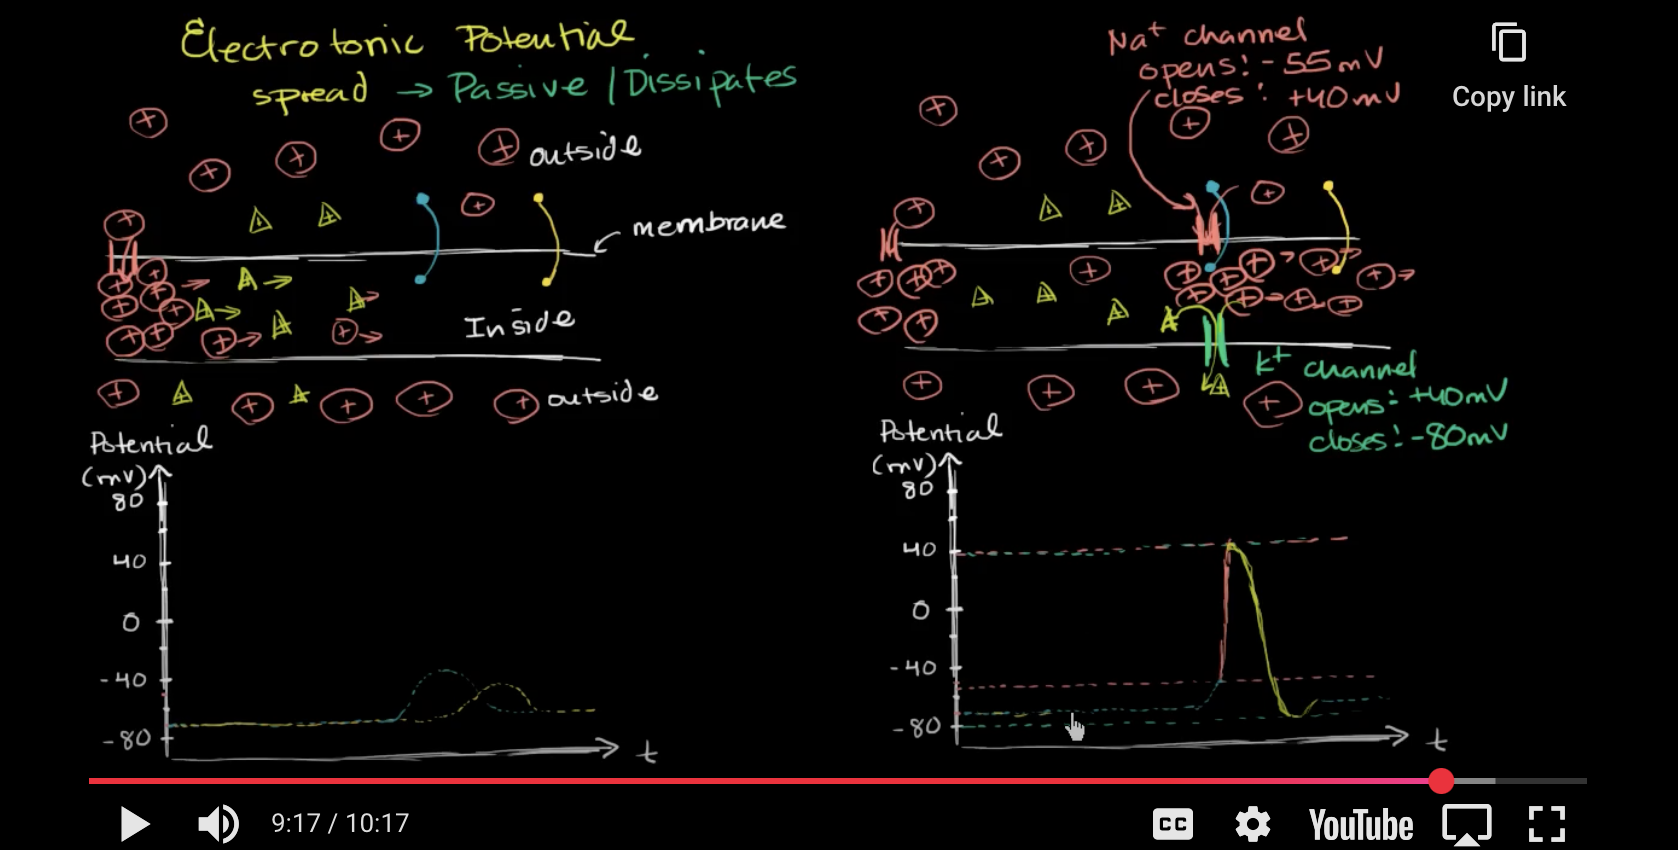 Electrotonic Potential
spread → Passive / Dissipates
outside
membrane
Inside
outside
Potential
(mV)
80
40
0
-40
-80
t
Na⁺ channel
opens: -55mV
closes: +40mV
K⁺ channel
opens: +40mV
closes: -80mV
Potential
(mV)
80
40
0
-40
-80
t
Copy link
9:17 / 10:17
CC
YouTube